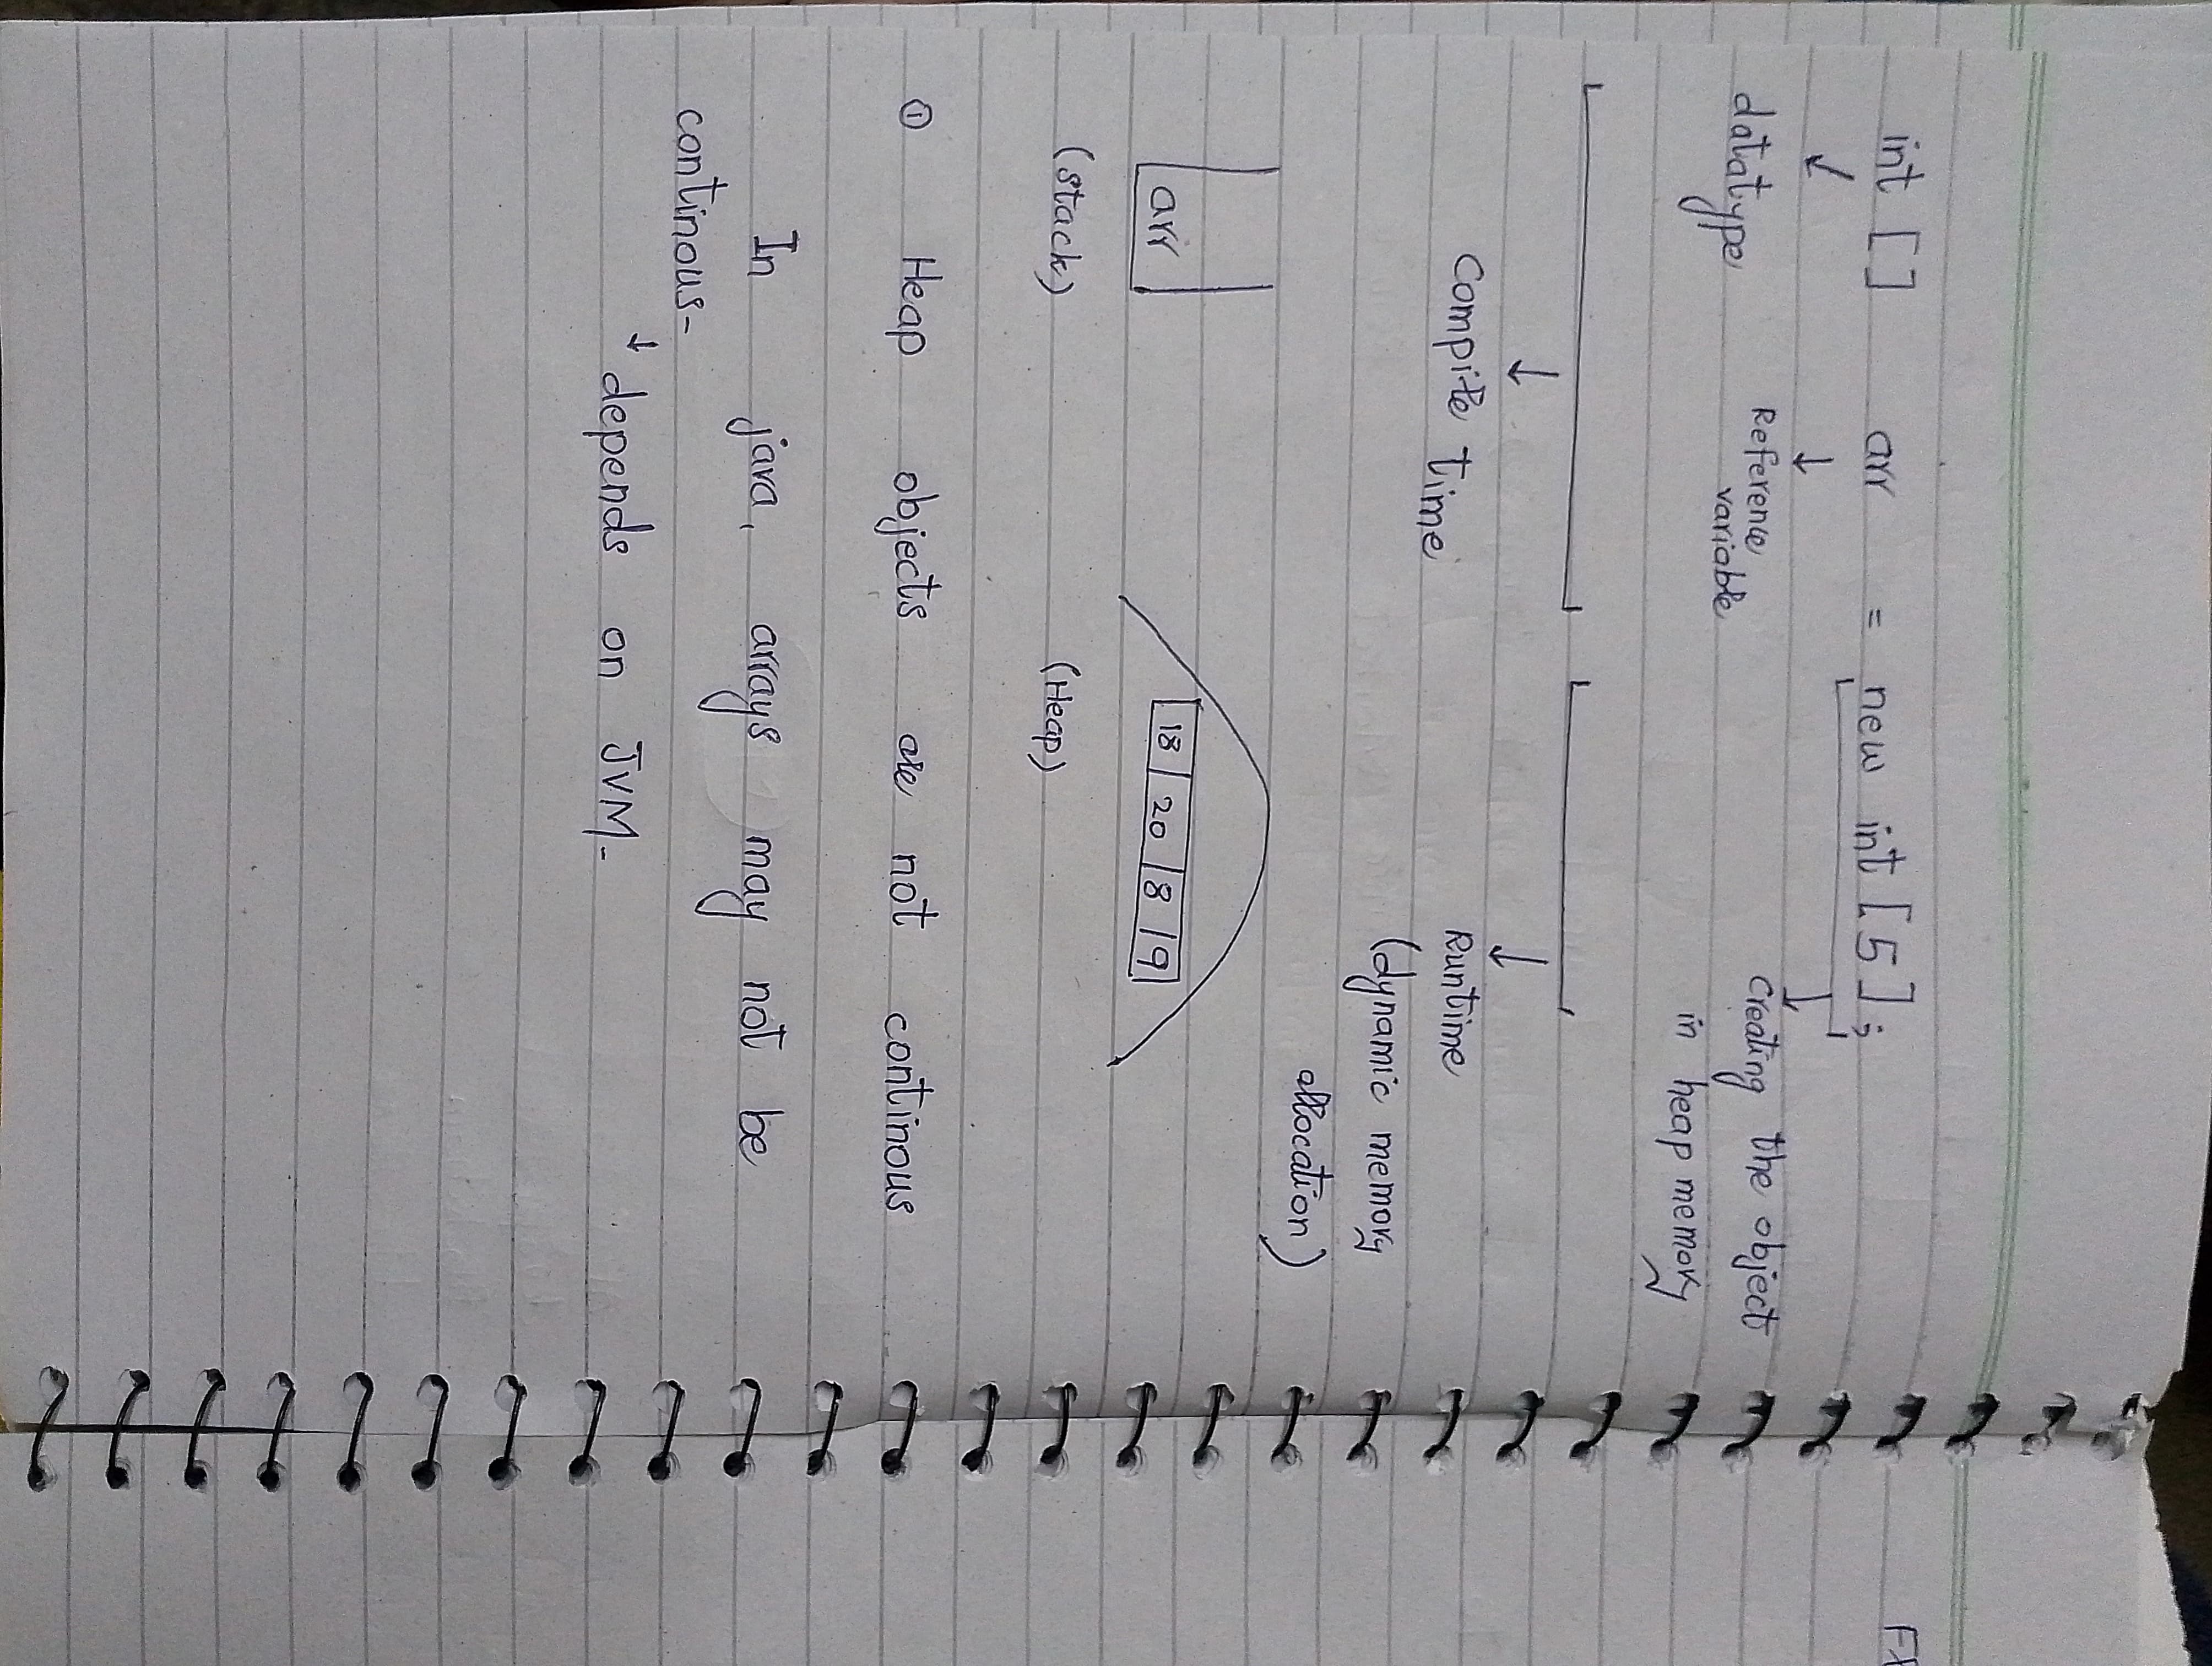 int [] arr = new int [5];
datatype Reference variable Creating the object
in heap memory
Compile time Runtime
(dynamic memory
allocation)
arr 18 20 8 9
(stack) (Heap)
① Heap objects are not continous
In java, arrays may not be
continous-
↓ depends on JVM-